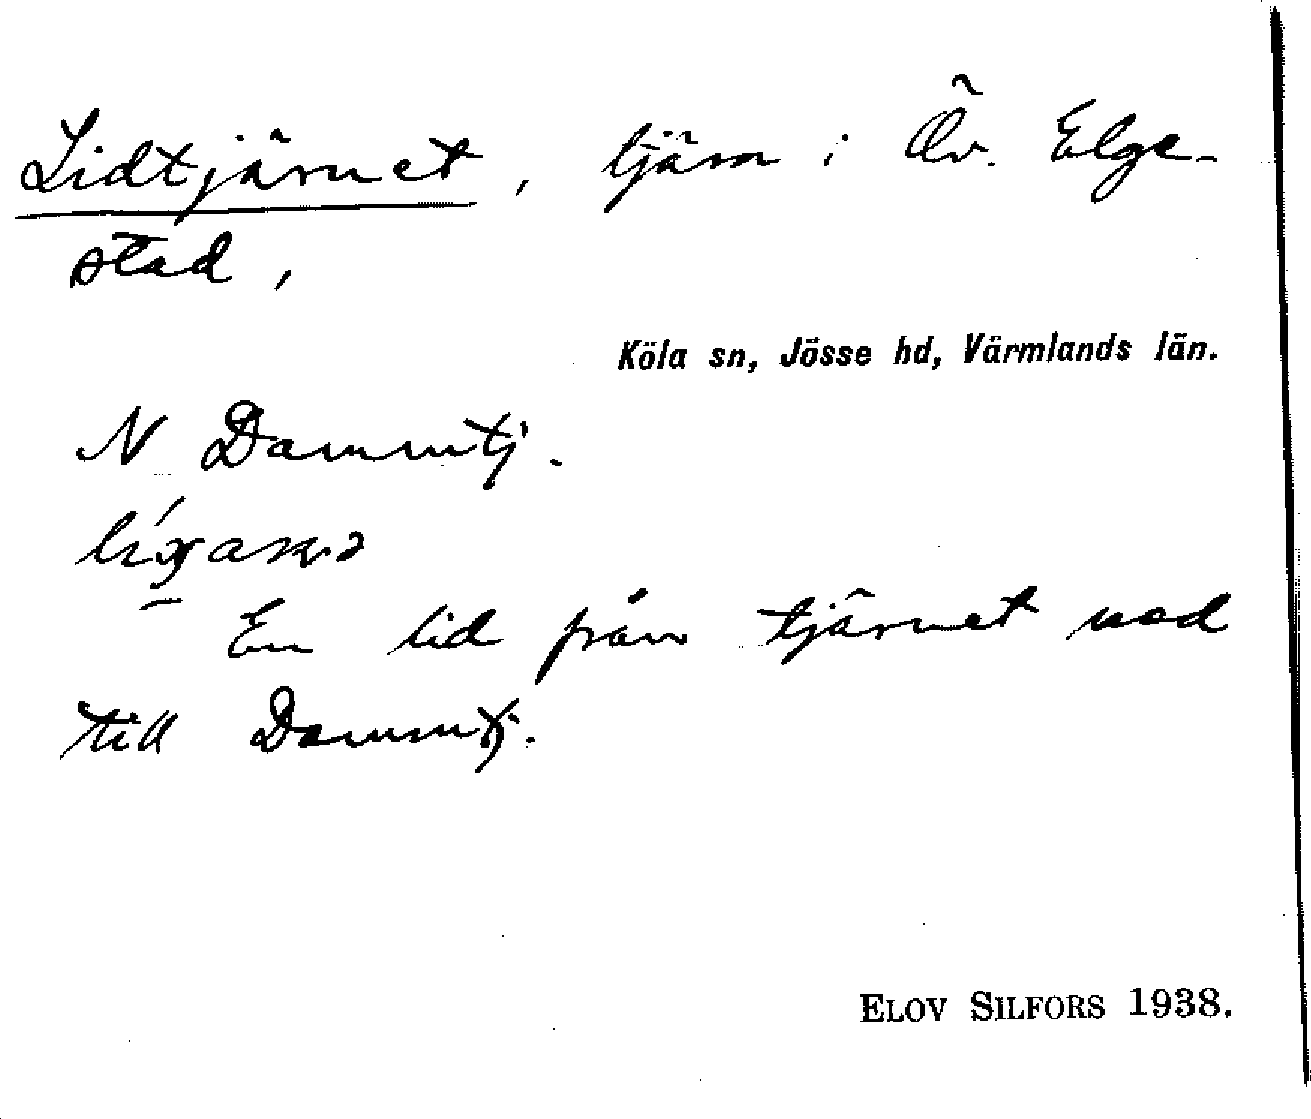 Lidtjärnet, tjärn i Öv. Elge-
stad,
Köla sn, Jösse hd, Värmlands län.
N Dammtj.
En lid från tjärnet ned
till Dammtj.
ELOV SILFORS 1938.